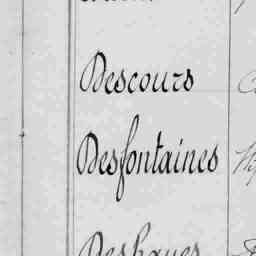 Descours
Desfontaines
Deshayes